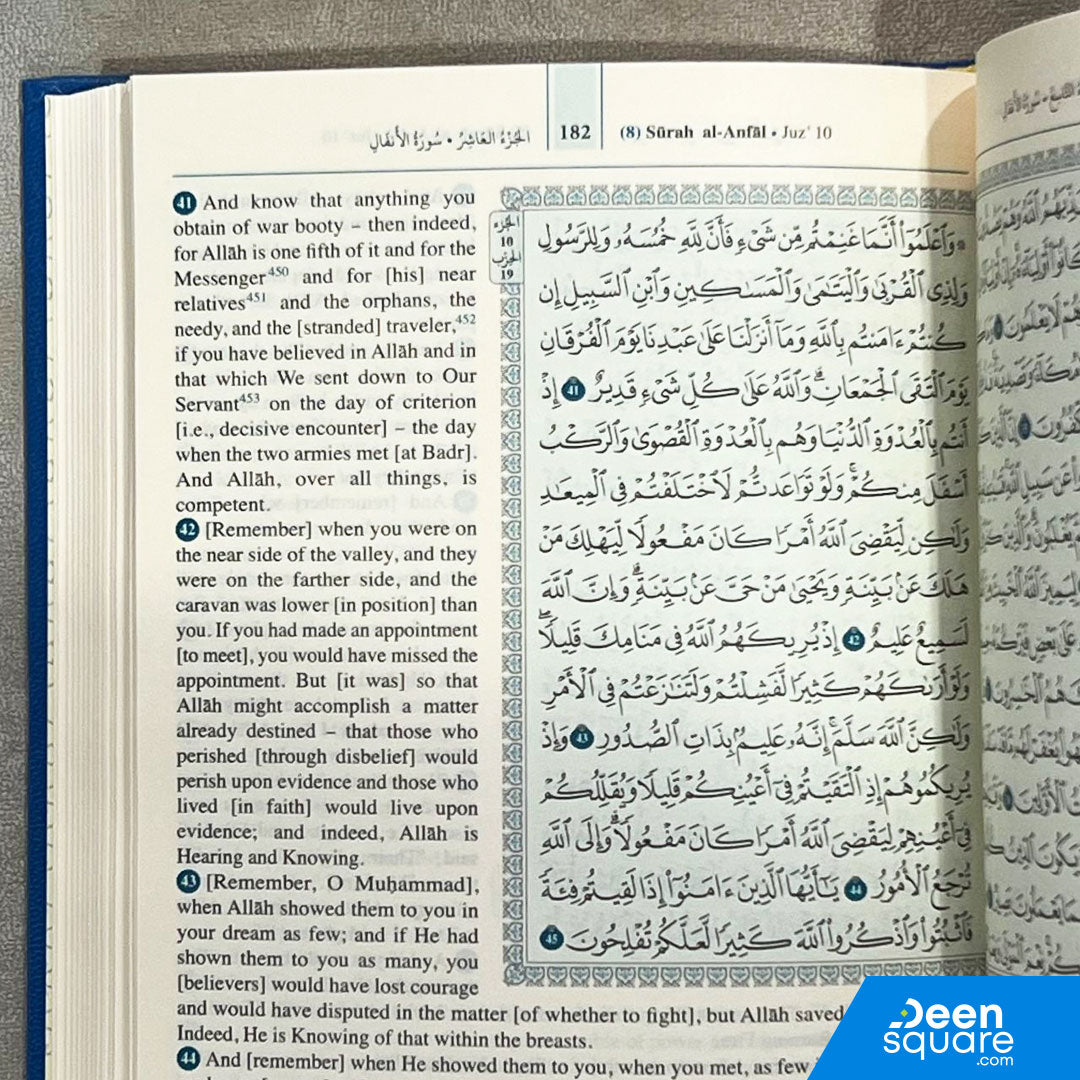 الجُزْءُ العَاشِرُ • سُورَةُ الأَنْفَالِ
182
(8) Sūrah al-Anfāl • Juz' 10
41 And know that anything you
obtain of war booty – then indeed,
for Allāh is one fifth of it and for the
Messenger450 and for [his] near
relatives451 and the orphans, the
needy, and the [stranded] traveler,452
if you have believed in Allāh and in
that which We sent down to Our
Servant453 on the day of criterion
[i.e., decisive encounter] – the day
when the two armies met [at Badr].
And Allāh, over all things, is
competent.
42 [Remember] when you were on
the near side of the valley, and they
were on the farther side, and the
caravan was lower [in position] than
you. If you had made an appointment
[to meet], you would have missed the
appointment. But [it was] so that
Allāh might accomplish a matter
already destined – that those who
perished [through disbelief] would
perish upon evidence and those who
lived [in faith] would live upon
evidence; and indeed, Allāh is
Hearing and Knowing.
43 [Remember, O Muḥammad],
when Allāh showed them to you in
your dream as few; and if He had
shown them to you as many, you
[believers] would have lost courage
and would have disputed in the matter [of whether to fight], but Allāh saved
Indeed, He is Knowing of that within the breasts.
44 And [remember] when He showed them to you, when you met, as few
الجزء
10
الحزب
19
وَٱعْلَمُوٓا۟ أَنَّمَا غَنِمْتُم مِّن شَىْءٍ فَأَنَّ لِلَّهِ خُمُسَهُۥ وَلِلرَّسُولِ
وَلِذِى ٱلْقُرْبَىٰ وَٱلْيَتَـٰمَىٰ وَٱلْمَسَـٰكِينِ وَٱبْنِ ٱلسَّبِيلِ إِن
كُنتُمْ ءَامَنتُم بِٱللَّهِ وَمَآ أَنزَلْنَا عَلَىٰ عَبْدِنَا يَوْمَ ٱلْفُرْقَانِ
يَوْمَ ٱلْتَقَى ٱلْجَمْعَانِ ۗ وَٱللَّهُ عَلَىٰ كُلِّ شَىْءٍ قَدِيرٌ 41 إِذْ
أَنتُم بِٱلْعُدْوَةِ ٱلدُّنْيَا وَهُم بِٱلْعُدْوَةِ ٱلْقُصْوَىٰ وَٱلرَّكْبُ
أَسْفَلَ مِنكُمْ ۚ وَلَوْ تَوَاعَدتُّمْ لَٱخْتَلَفْتُمْ فِى ٱلْمِيعَـٰدِ
وَلَـٰكِن لِّيَقْضِىَ ٱللَّهُ أَمْرًا كَانَ مَفْعُولًا لِّيَهْلِكَ مَنْ
هَلَكَ عَنۢ بَيِّنَةٍ وَيَحْيَىٰ مَنْ حَىَّ عَنۢ بَيِّنَةٍ ۗ وَإِنَّ ٱللَّهَ
لَسَمِيعٌ عَلِيمٌ 42 إِذْ يُرِيكَهُمُ ٱللَّهُ فِى مَنَامِكَ قَلِيلًا ۖ
وَلَوْ أَرَىٰكَهُمْ كَثِيرًا لَّفَشِلْتُمْ وَلَتَنَـٰزَعْتُمْ فِى ٱلْأَمْرِ
وَلَـٰكِنَّ ٱللَّهَ سَلَّمَ ۗ إِنَّهُۥ عَلِيمٌۢ بِذَاتِ ٱلصُّدُورِ 43 وَإِذْ
يُرِيكُمُوهُمْ إِذِ ٱلْتَقَيْتُمْ فِىٓ أَعْيُنِكُمْ قَلِيلًا وَيُقَلِّلُكُمْ
فِىٓ أَعْيُنِهِمْ لِيَقْضِىَ ٱللَّهُ أَمْرًا كَانَ مَفْعُولًا ۗ وَإِلَى ٱللَّهِ
تُرْجَعُ ٱلْأُمُورُ 44 يَـٰٓأَيُّهَا ٱلَّذِينَ ءَامَنُوٓا۟ إِذَا لَقِيتُمْ فِئَةً
فَٱثْبُتُوا۟ وَٱذْكُرُوا۟ ٱللَّهَ كَثِيرًا لَّعَلَّكُمْ تُفْلِحُونَ 45
Deen
square
.com